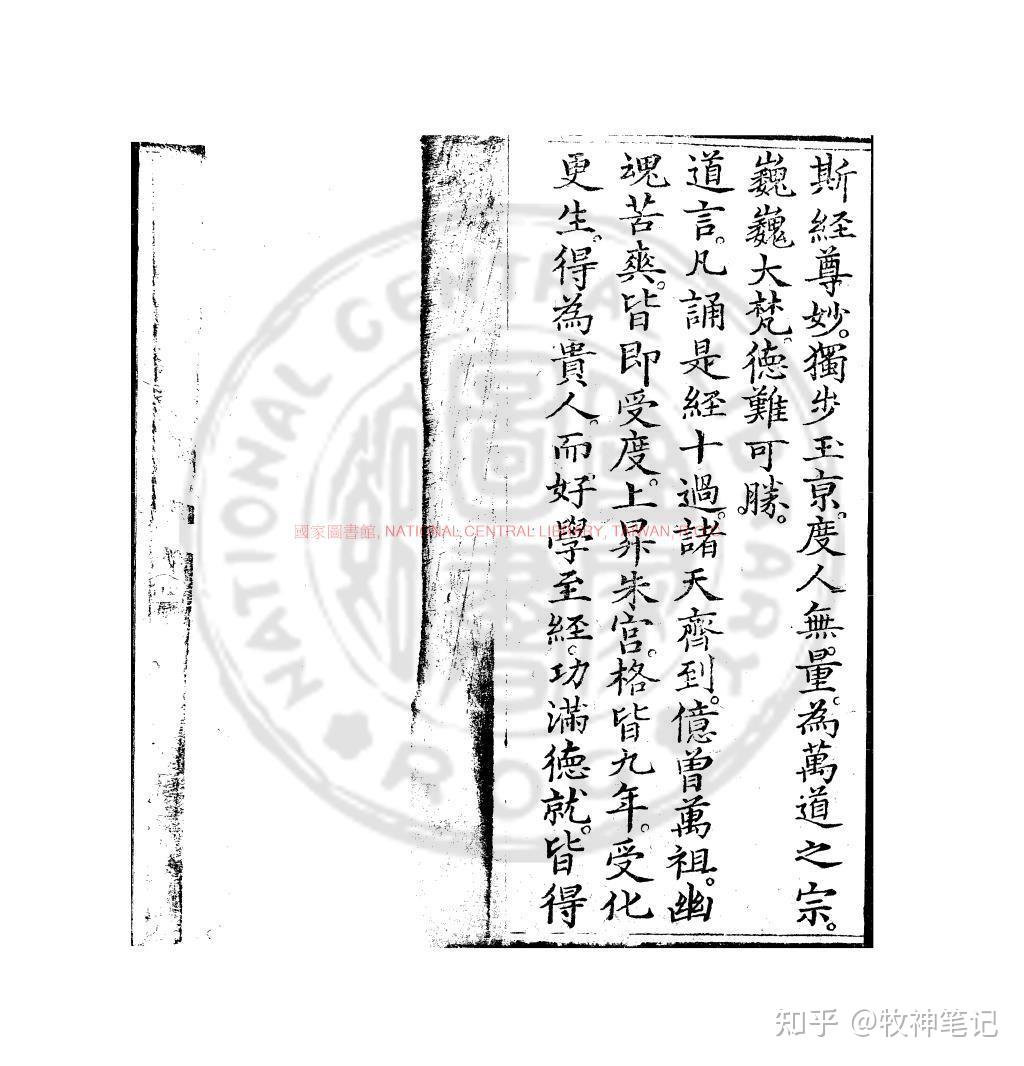 斯經尊妙。獨步玉京。度人無量。為萬道之宗。
巍巍大梵。德難可勝。
道言。凡誦是經十過。諸天齊到。億曾萬祖。幽
魂苦爽。皆即受度。上昇朱宮。格皆九年。受化
更生。得為貴人。而好學至經。功滿德就。皆得
國家圖書館, NATIONAL CENTRAL LIBRARY, TAIWAN,
NATIONAL CENTRAL LIBRARY
知乎 @牧神笔记